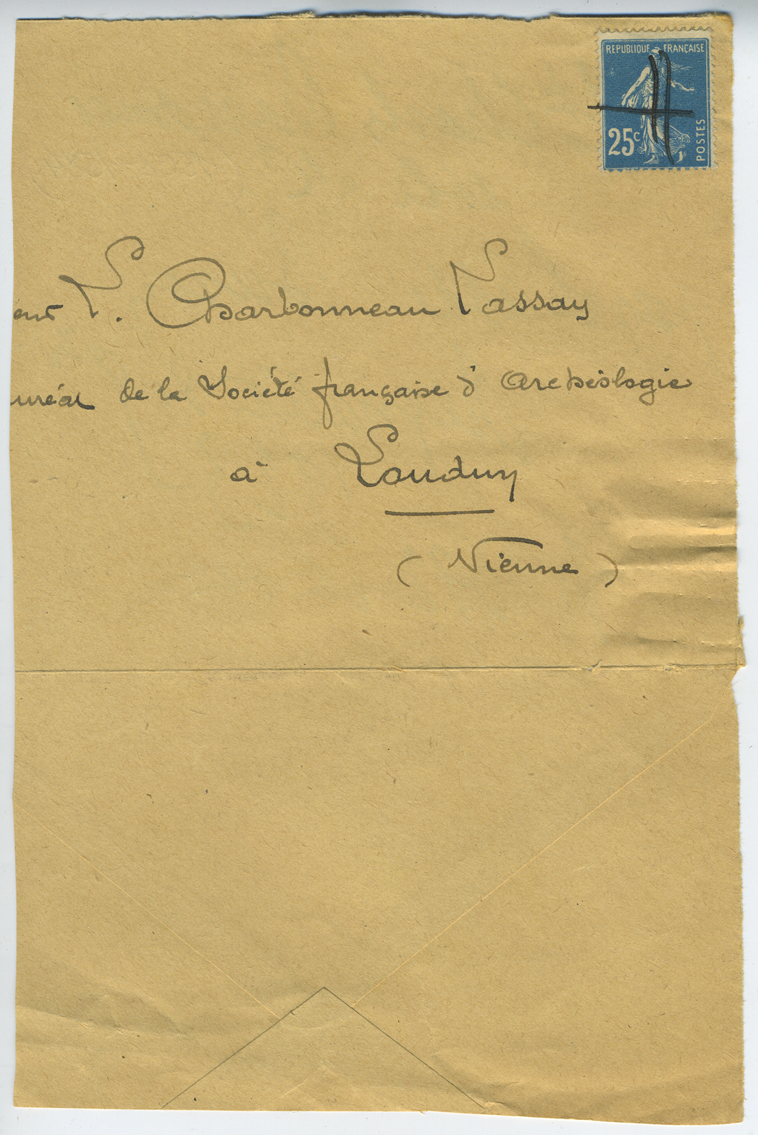 RÉPUBLIQUE FRANÇAISE
25c
POSTES
eur L. Charbonneau Lassay
uréat de la Société française d'Archéologie
à Loudun
(Vienne)